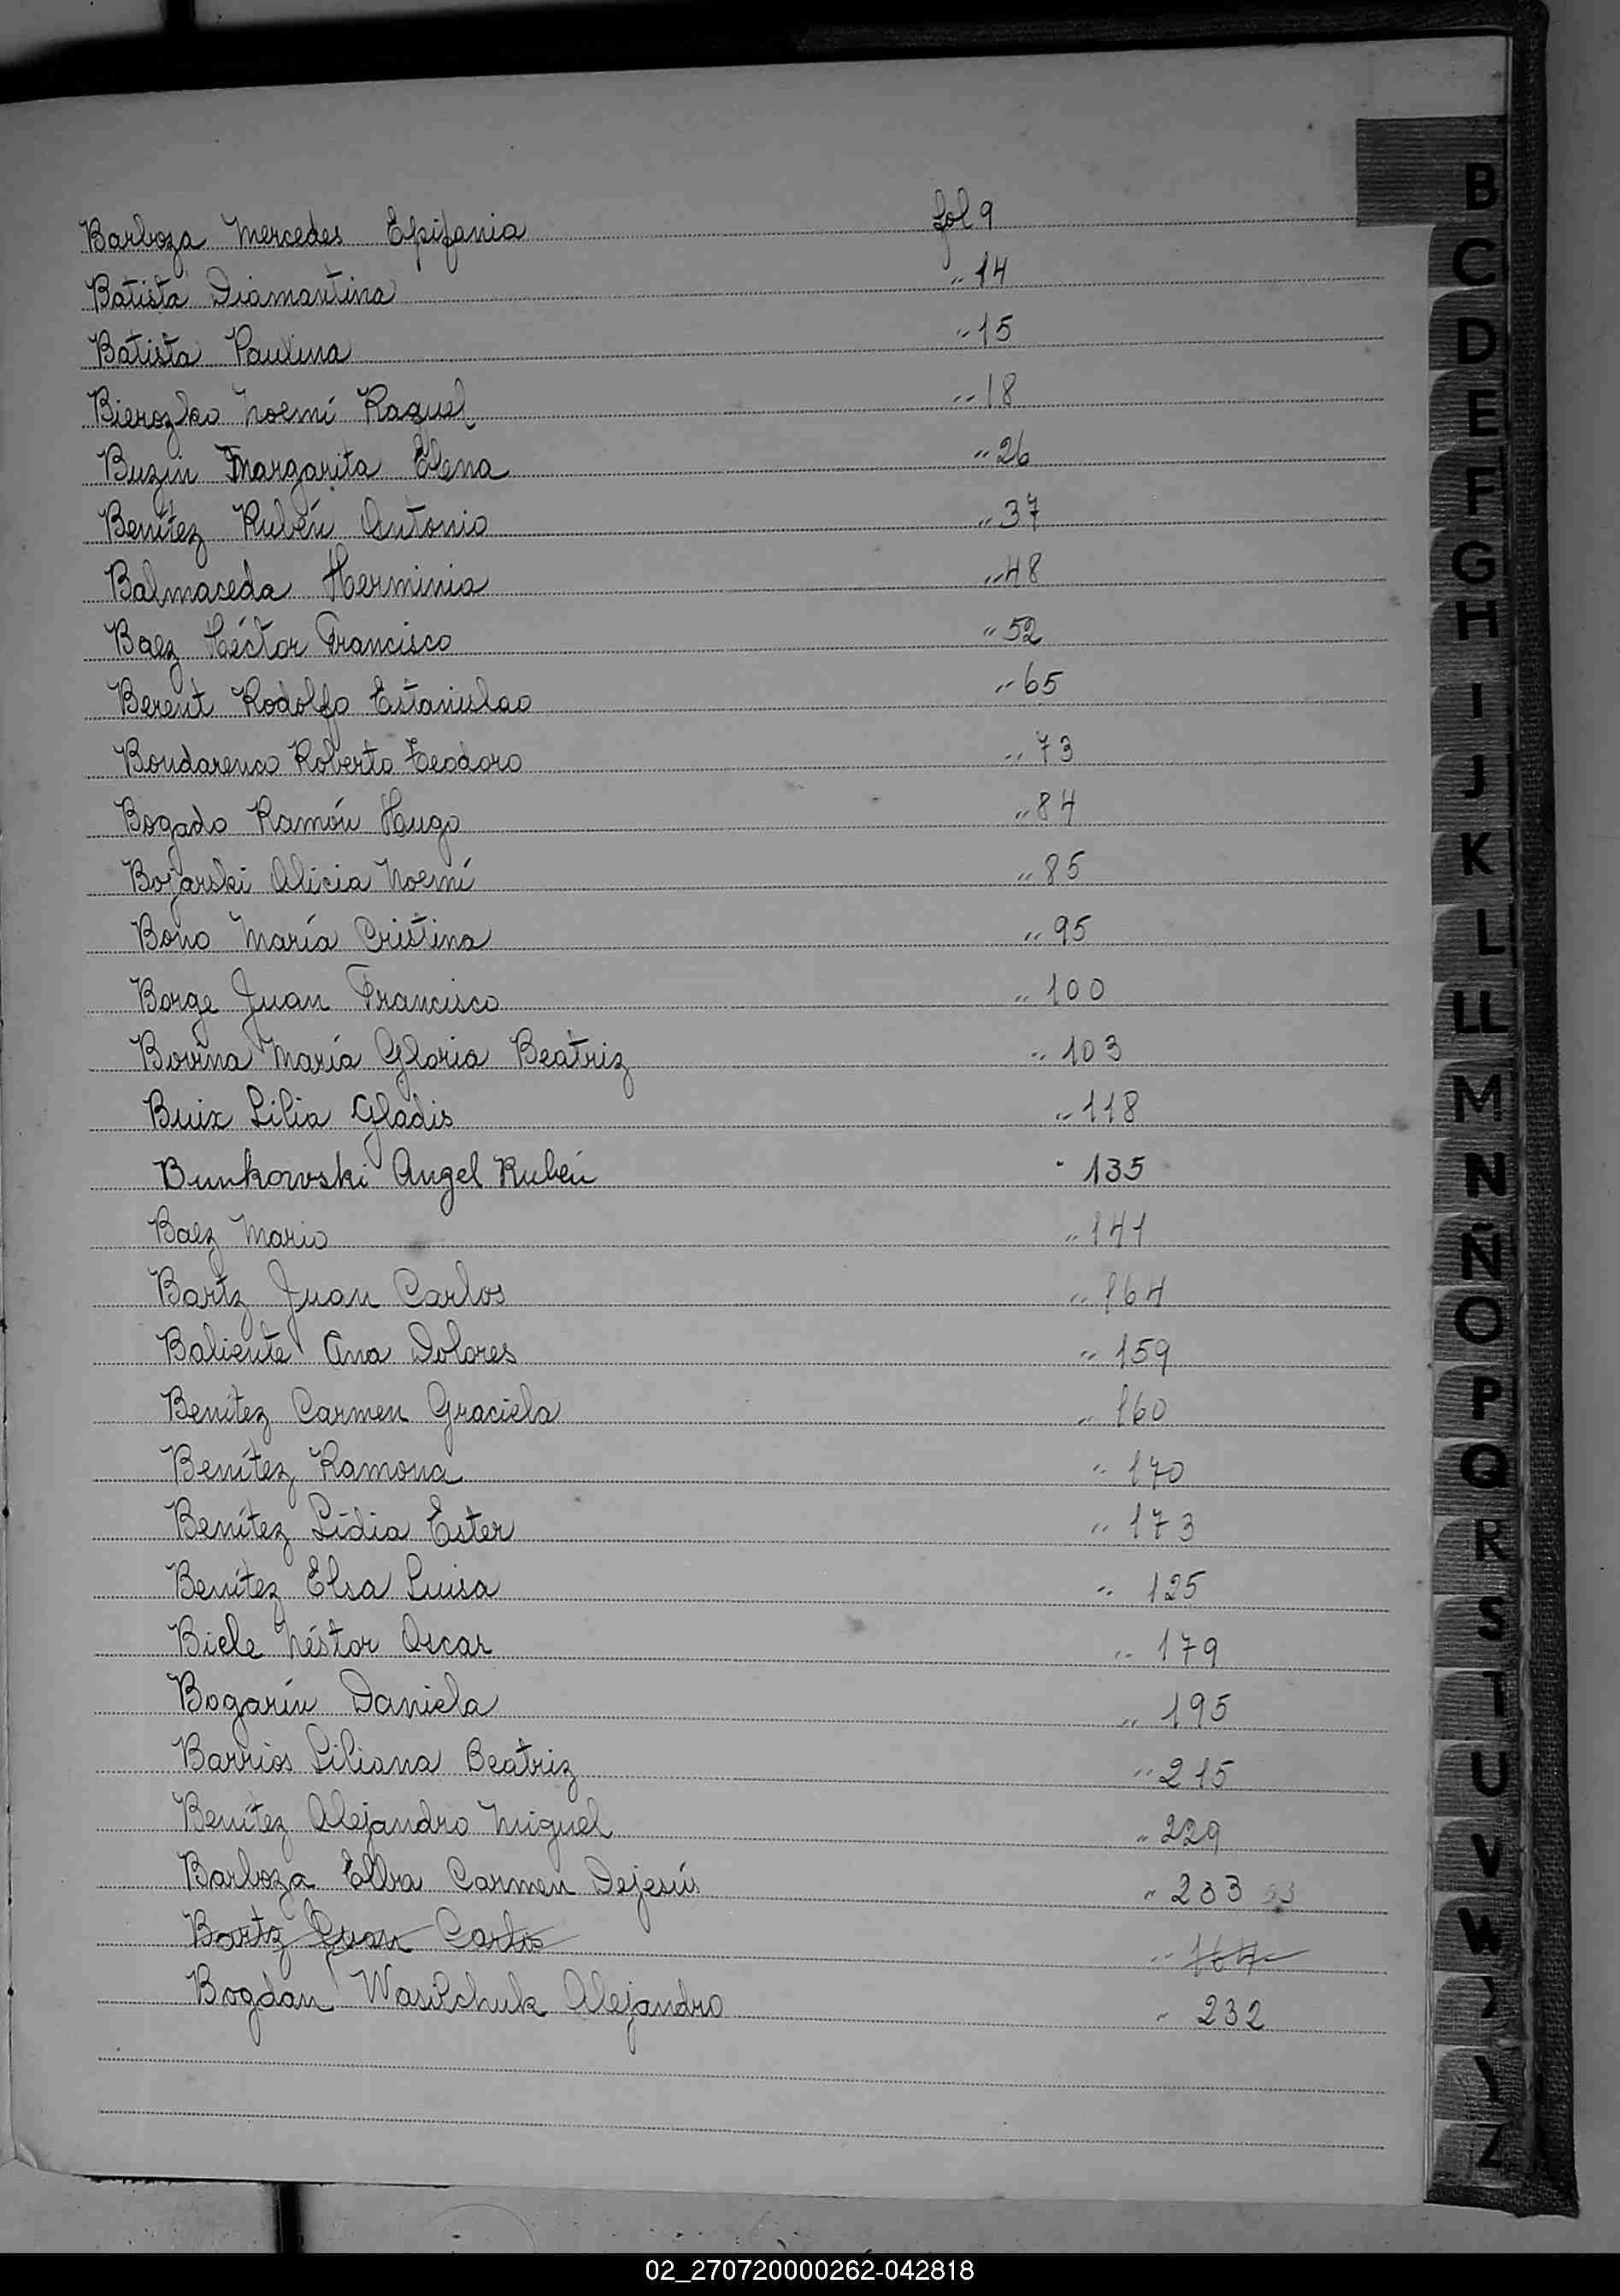 B
Barboza Mercedes Epifania fol 9
Batista Diamantina " 14
Batista Paulina " 15
Bierozko Noemí Raquel " 18
Buzin Margarita Elena " 26
Benítez Rubén Antonio " 37
Balmaceda Herminia " 48
Baez Héctor Francisco " 52
Berent Rodolfo Estanislao " 65
Bondarenco Roberto Teodoro " 73
Bogado Ramón Hugo " 84
Bojarski Alicia Noemí " 85
Bono María Cristina " 95
Borge Juan Francisco " 100
Bovina María Gloria Beatriz " 103
Buix Lilia Gladis " 118
Bunkowski Angel Rubén " 135
Baez Mario " 141
Bartz Juan Carlos " 164
Baliente Ana Dolores " 159
Benítez Carmen Graciela " 160
Benítez Ramona " 170
Benítez Lidia Ester " 173
Benítez Elsa Luisa " 125
Biele Néstor Oscar " 179
Bogarín Daniela " 195
Barrios Liliana Beatriz " 215
Benítez Alejandro Miguel " 229
Barboza Elba Carmen Dejesús " 233
Bartz Juan Carlos " 164
Bogdan Wasilchuk Alejandro " 232
C
D
E
F
G
H
I
J
K
L
LL
M
N
Ñ
O
P
Q
R
S
T
U
V
W
Z
02_270720000262-042818